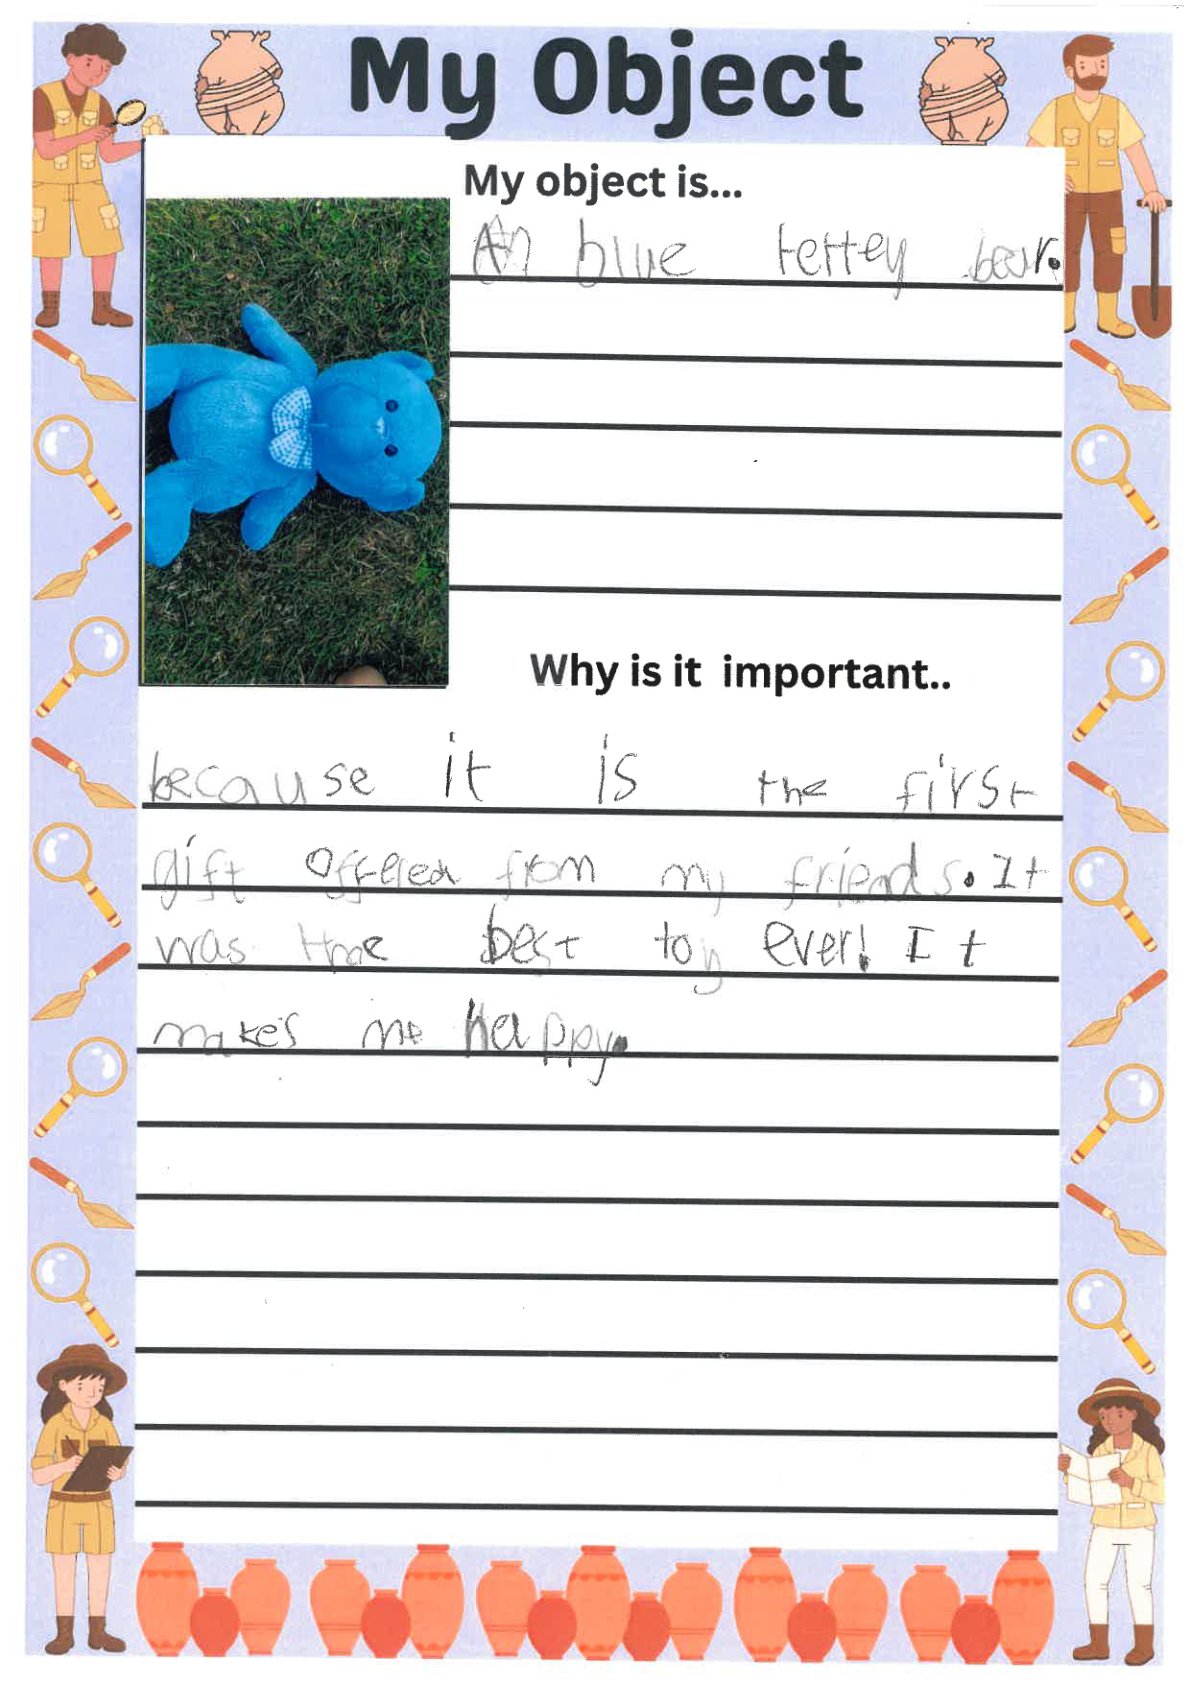 My Object
My object is...
An blue tettey bear.
Why is it important..
because it is the first
gift offered from my friends. It
was the best toy ever! It
makes me happy.